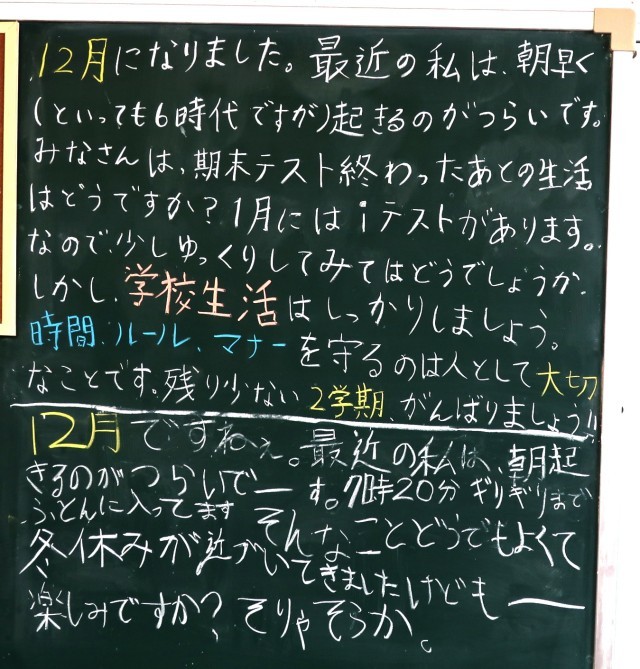 12月になりました。最近の私は、朝早く
(といっても6時代ですが)起きるのがつらいです。
みなさんは、期末テスト終わったあとの生活
はどうですか？1月にはiテストがあります。
なので、少しゆっくりしてみてはどうでしょうか。
しかし、学校生活はしっかりしましょう。
時間、ルール、マナーを守るのは人として大切
なことです。残り少ない2学期、がんばりましょう!!
12月ですねぇ。最近の私は、朝起
きるのがつらいでーす。7時20分ギリギリまで
ふとんに入ってます そんなことどうでもよくて
冬休みが近づいてきましたけどもー
楽しみですか？そりゃそうか。